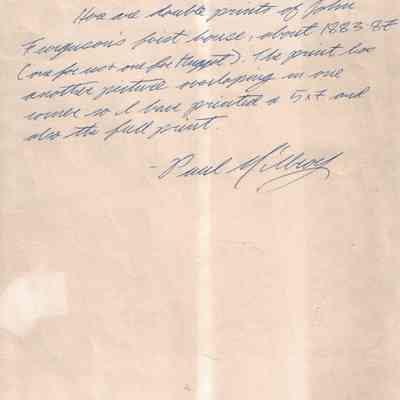 Here are double prints of John
Ferguson's first house, about 1883-87
(one for us + one for Nugget). The print has
another picture overlaping in one
corner so I have printed a 5x7 and
also the full print.
- Paul